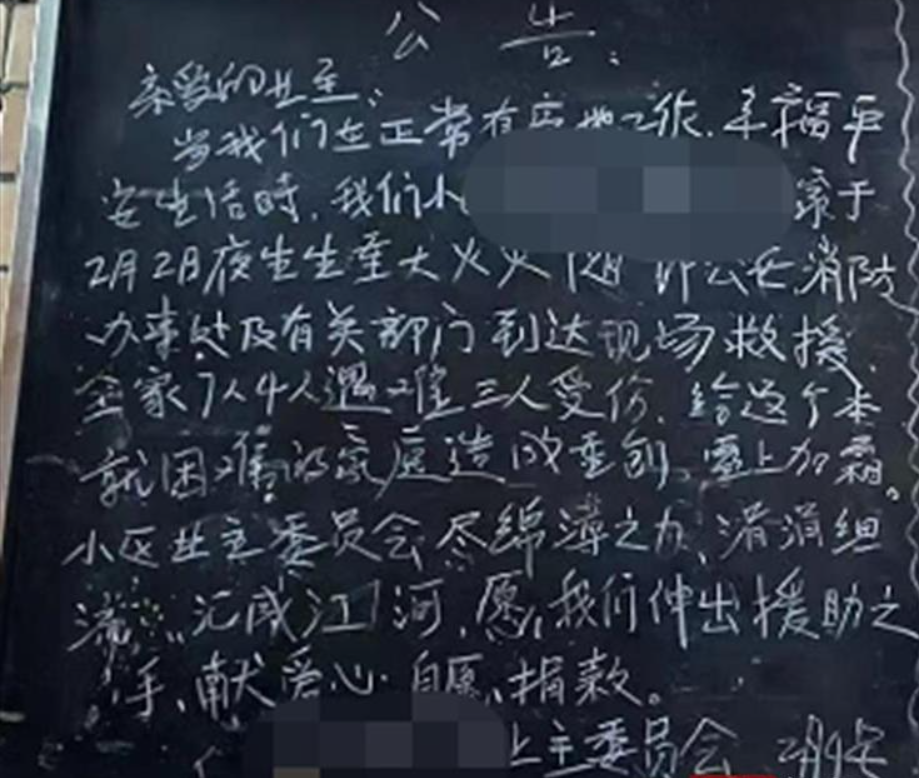 公告:
亲爱的业主:
当我们在正常有序地工作,幸福平
安生活时,我们小 家于
2月2日夜生生重大火灾 消防
办事处及有关部门到达现场救援,
全家7人4人遇难三人受伤,给这个本
就困难的家庭造成重创,雪上加霜。
小区业主委员会尽绵薄之力,涓涓细
流,汇成江河,愿我们伸出援助之
手,献爱心·自愿,捐款。
主委员会 2月